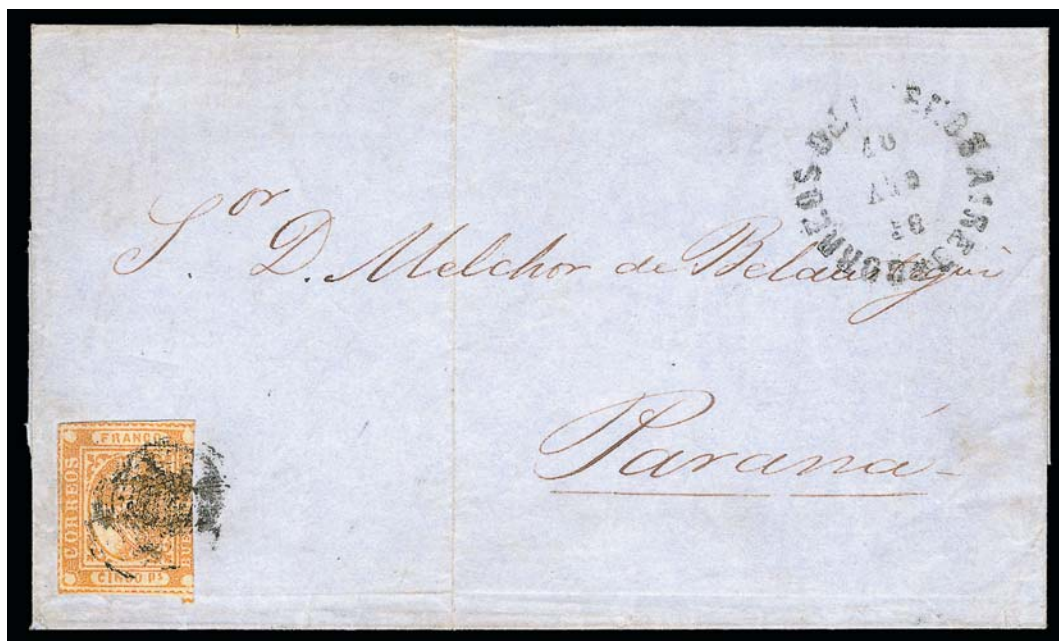 CORREOS DE BUENOS AIRES
58
Sor D. Melchor de Belaustegui
Paraná
FRANCO
CORREOS
CINCO Ps